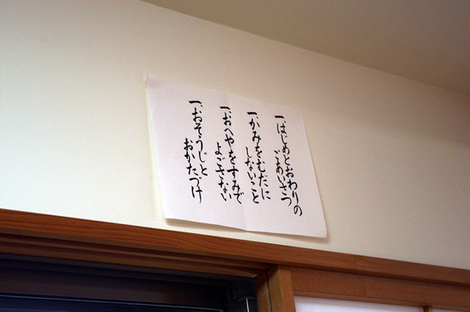 一、はじめとおわりの
ごあいさつ
一、かみをむだに
しないこと
一、おへやをすみで
よごさない
一、おそうじと
おかたづけ